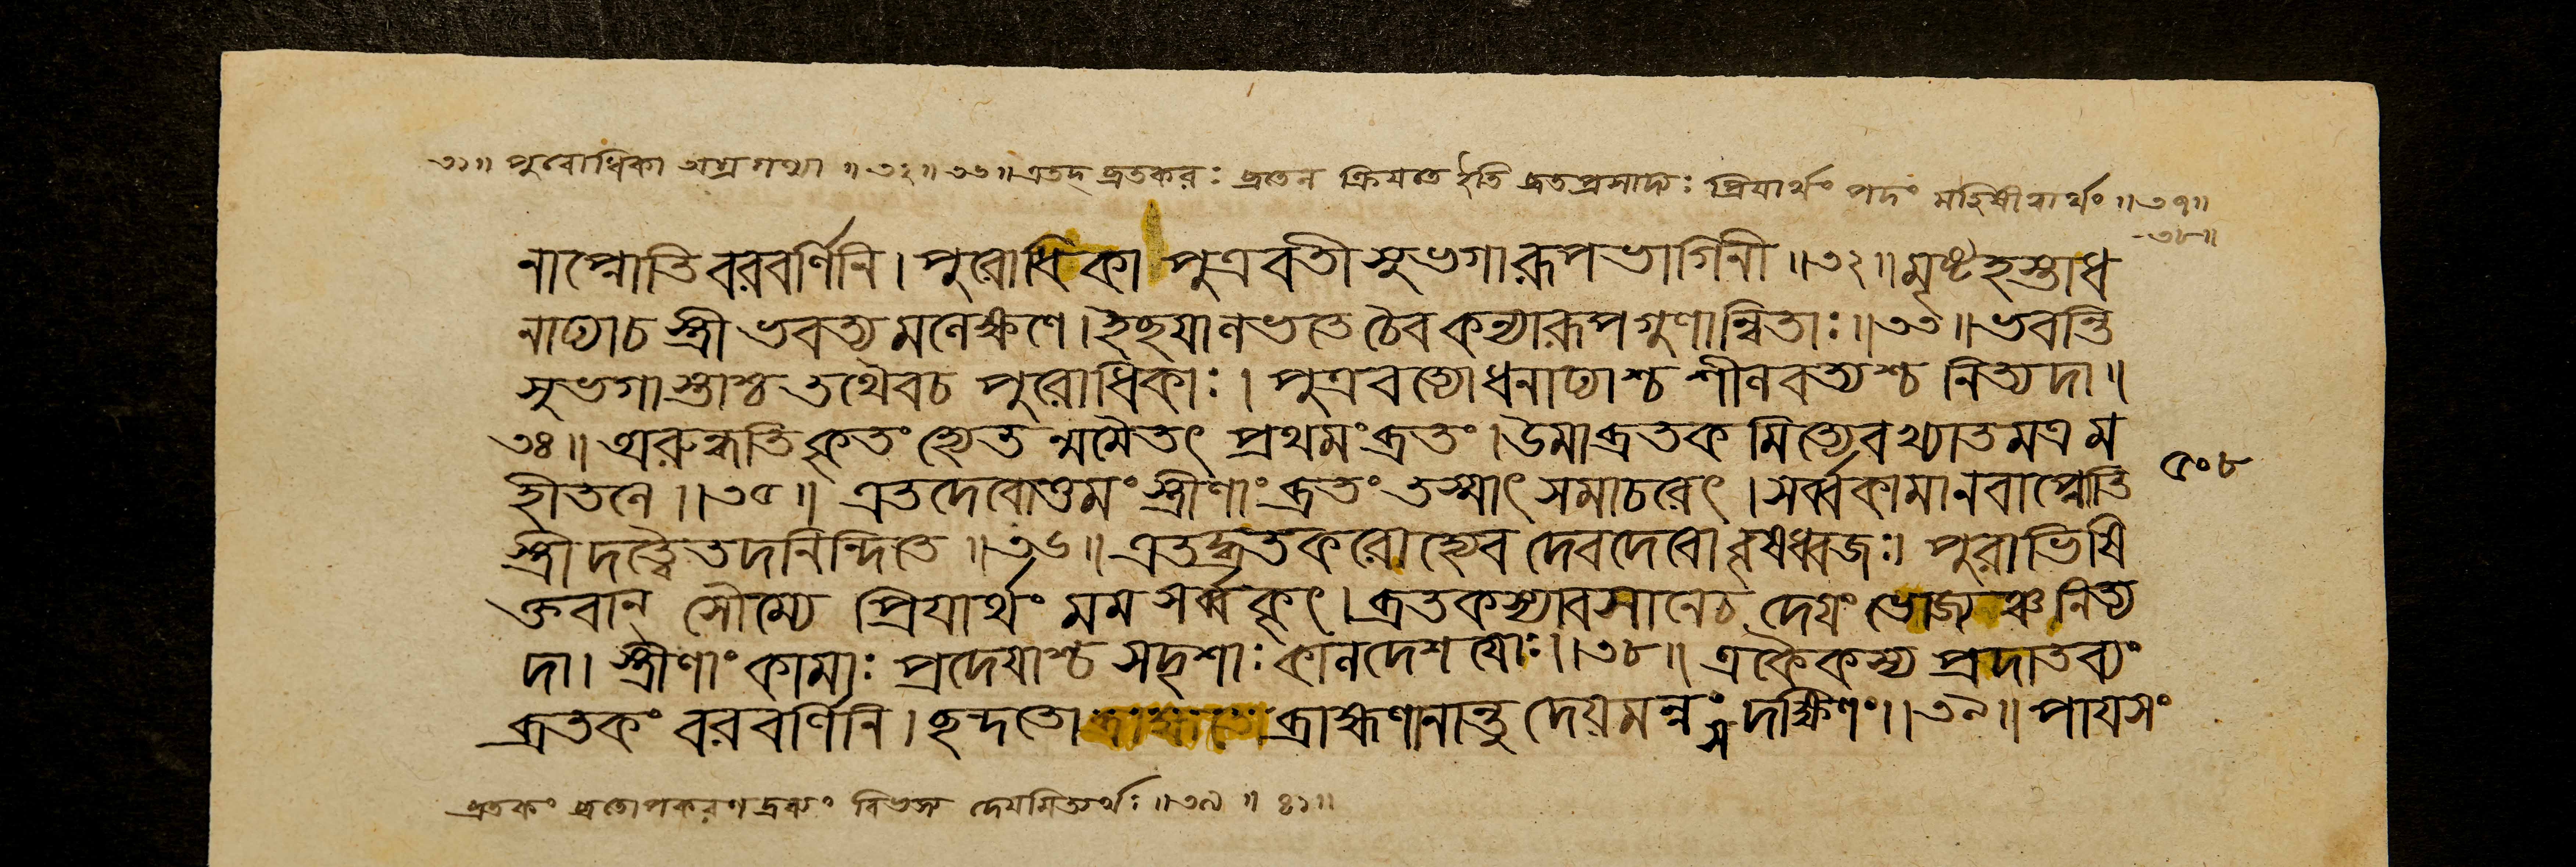 ৩১॥ পুরোধিকা অগ্রগণ্যা ॥৩২॥৩৬॥ এতদ্ব্রতকরঃ ব্রতেন ক্রিয়তে ইতি ব্রতপ্রসাদঃ প্রিয়ার্থং পদং মহিষীত্বার্থং॥৩৭॥
৩৮॥
নাপ্নোতি বরবর্ণিনি। পুরোধিকা পুত্রবতী সুভগা রূপভাগিনী॥৩২॥ মৃষ্টহস্তা ধ
নাঢ্যা চ স্ত্রী ভবত্য মনেক্ষণে। ইহ যা ন ভতে চৈব কন্যা রূপগুণান্বিতাঃ॥৩৩॥ ভবন্তি
সুভগাস্তাশ্চ তথৈবচ পুরোধিকাঃ। পুত্রবত্যো ধনাঢ্যাশ্চ শীলবত্যশ্চ নিত্যদা॥
৩৪॥ অরুন্ধতি কৃতং হ্যেত ন্মমৈতৎ প্রথমং ব্রতং। উমাব্রতক মিত্যেব খ্যাতমত্র ম
হীতলে॥৩৫॥ এতদেবোত্তমং স্ত্রীণাং ব্রতং তস্মাৎ সমাচরেৎ। সর্ব্বকামানবাপ্নোতি
স্ত্রী দত্ত্বৈতদনিন্দিতে॥৩৬॥ এতদ্ব্রতকরো হ্যেব দেবদেবো বৃষধ্বজঃ। পুরাভিষি
ক্তবান্ সৌম্যে প্রিয়ার্থং মম সর্ব্বকৃৎ। ব্রতকস্যাবসানে চ দেয়ং ভোজ্যঞ্চ নিত্য
দা। স্ত্রীণাং কামাঃ প্রদেয়াশ্চ সদৃশাঃ কালদেশয়োঃ॥৩৮॥ একৈকস্য প্রদাতব্যং
ব্রতকং বরবর্ণিনি। ছন্দতো ব্রাহ্মণানান্তু দেয়মন্নং সদক্ষিণং॥৩৯॥ পায়সং
ব্রতকং ব্রতোপকরণদ্রব্যং বিভজ্য দেয়মিত্যর্থঃ॥৩৯॥৪১॥